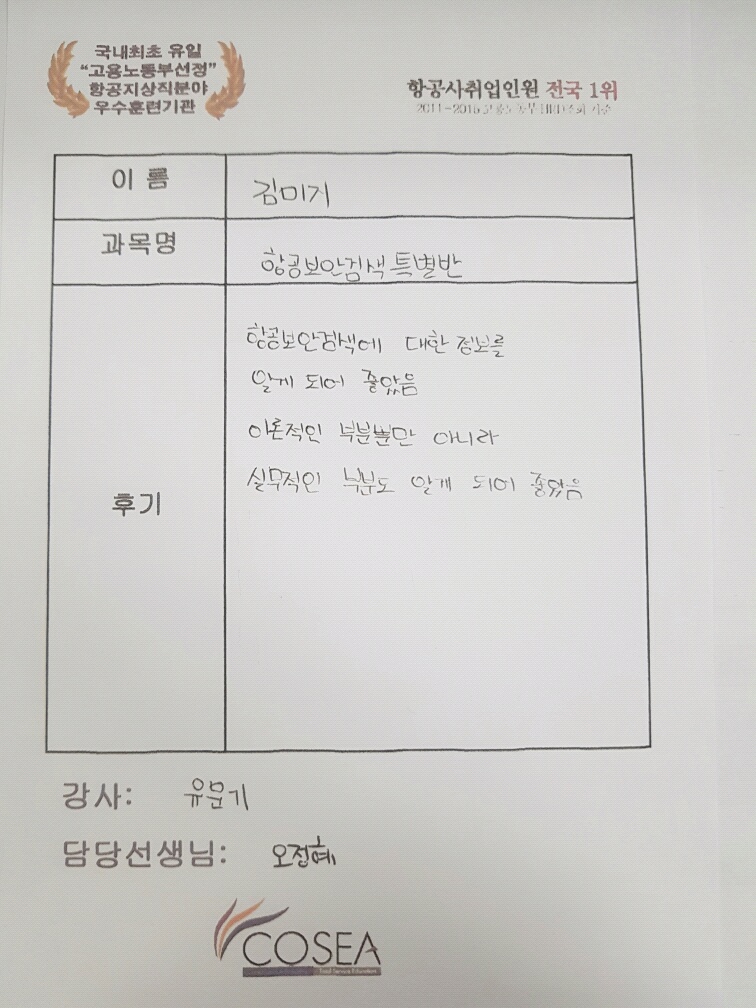 국내최초 유일
“고용노동부선정”
항공지상직분야
우수훈련기관
항공사취업인원 전국 1위
2011~2015 고용노동부 HRD조회 기준
이 름
김미기
과목명
항공보안검색 특별반
후기
항공보안검색에 대한 정보를
알게 되어 좋았음
이론적인 부분뿐만 아니라
실무적인 부분도 알게 되어 좋았음
강사: 유문기
담당선생님: 오정혜
COSEA
Total Service Education